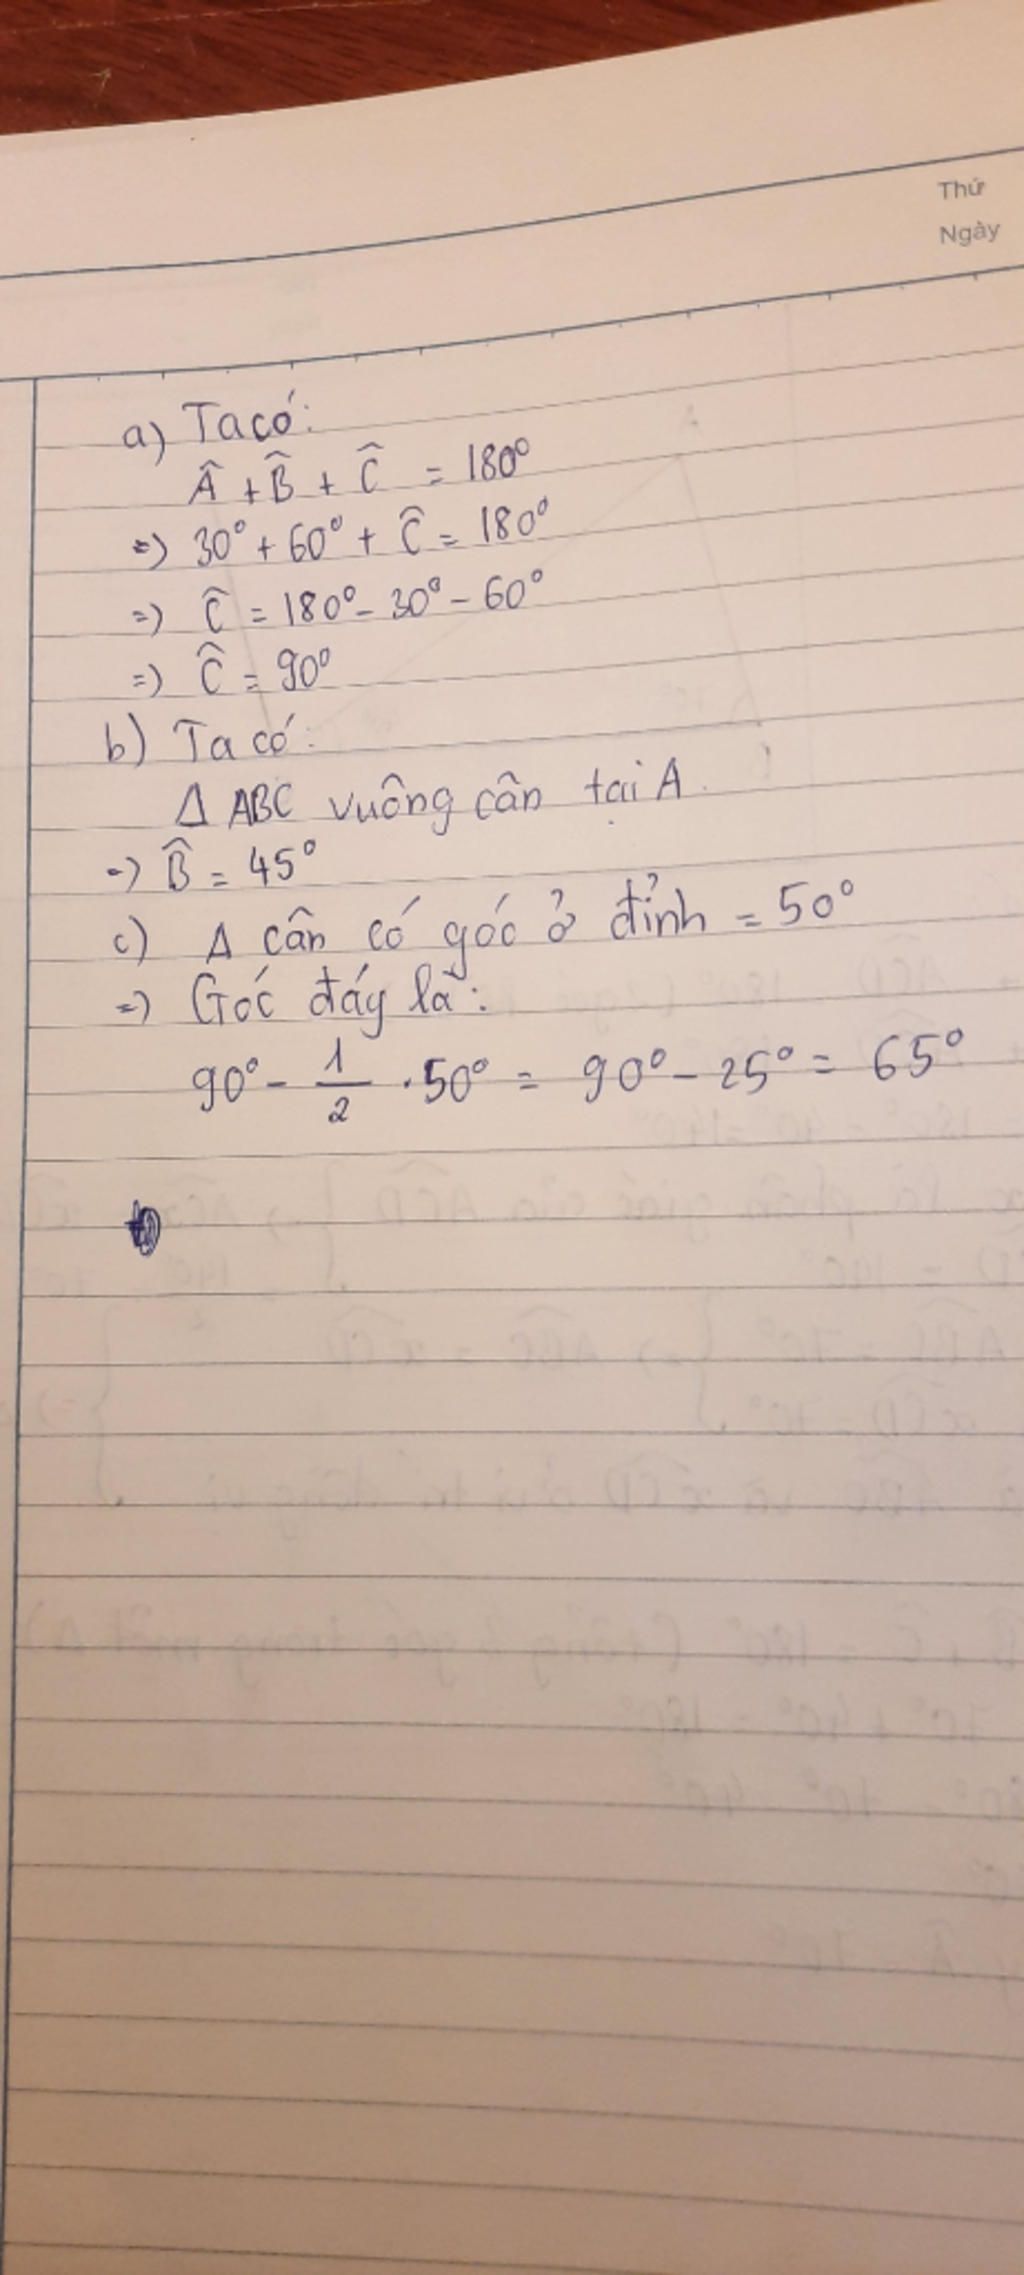 Thứ
Ngày
a) Ta có:
Â + B̂ + Ĉ = 180°
=) 30° + 60° + Ĉ = 180°
=) Ĉ = 180° - 30° - 60°
=) Ĉ = 90°
b) Ta có:
Δ ABC vuông cân tại A.
=) B̂ = 45°
c) Δ cân có góc ở đỉnh = 50°
=) Góc đáy là:
90° - 1/2 . 50° = 90° - 25° = 65°